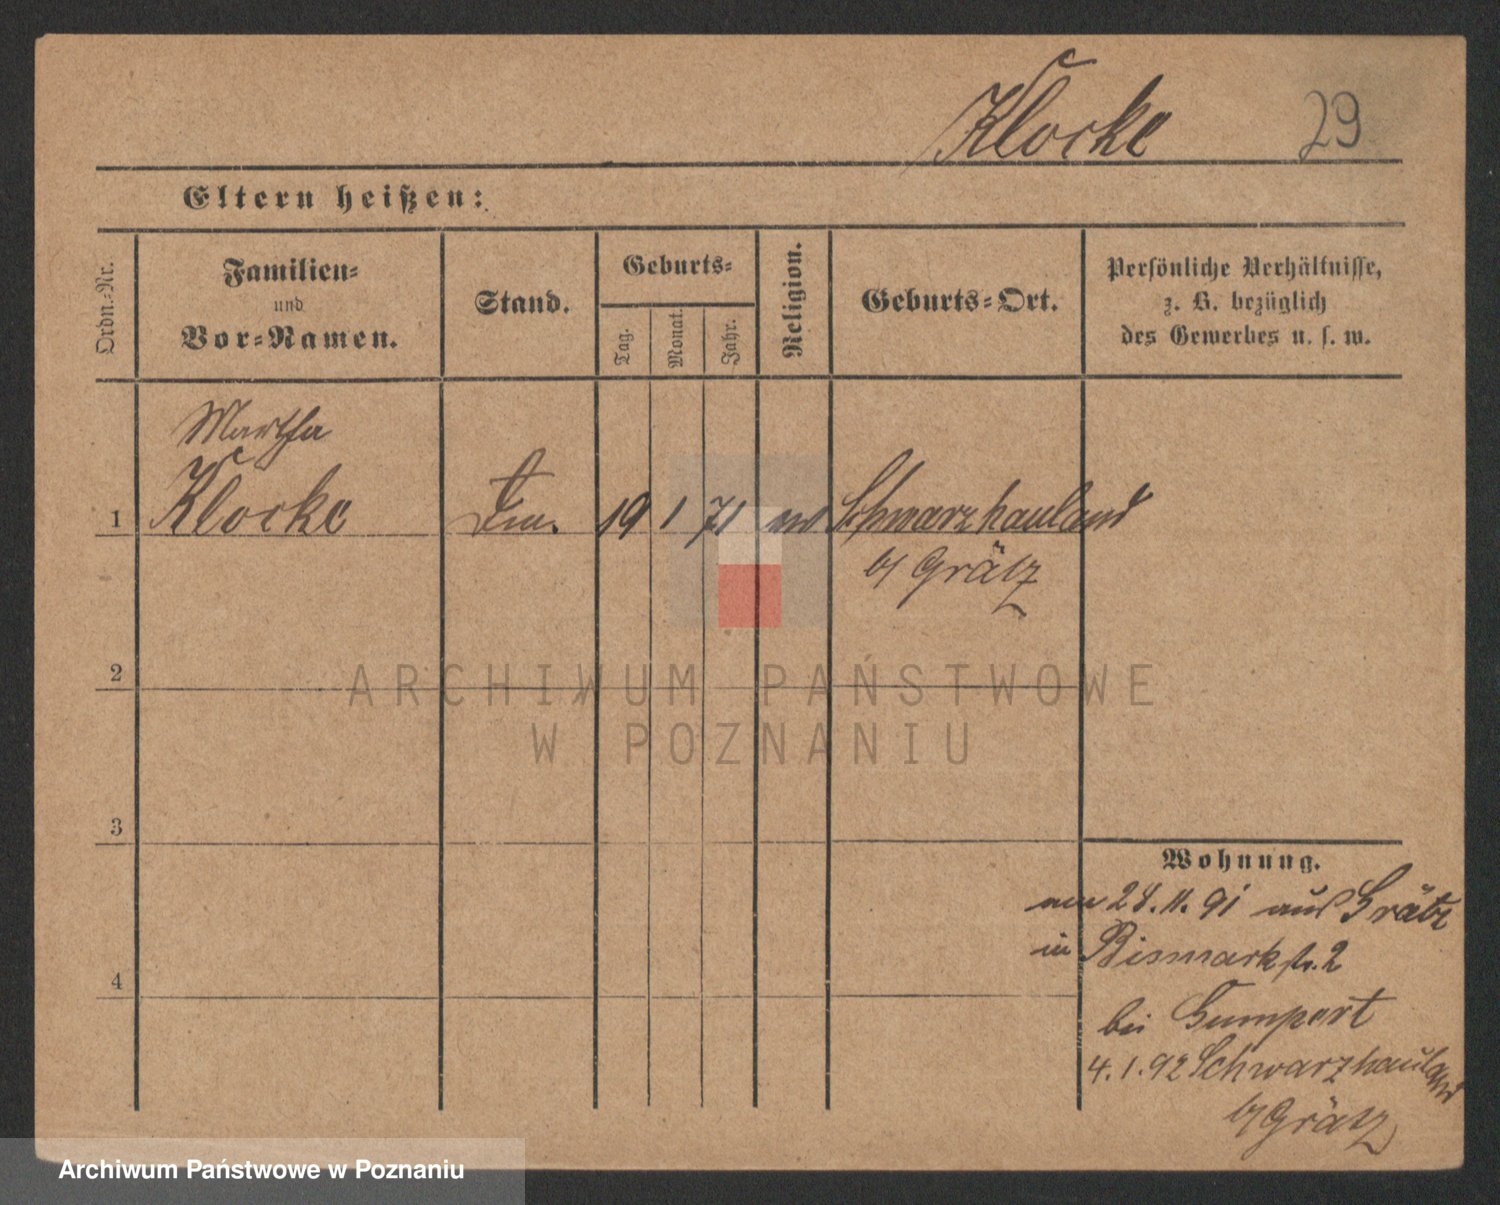 Klocke 29
Eltern heißen:
Ordn.-Nr.
Familien-
und
Vor-Namen.
Stand.
Geburts-
Tag.
Monat.
Jahr.
Religion.
Geburts-Ort.
Persönliche Verhältnisse,
z. B. bezüglich
des Gewerbes u. s. w.
Martha
1 Klocke 19 1 71 Schwarzhauland
b/ Grätz
2
3
4
Wohnung.
am 28.11.91 aus Grätz
in Bismarkstr. 2
bei Gumpert
4.1.92 Schwarzhauland
b/ Grätz
ARCHIWUM PAŃSTWOWE
W POZNANIU
Archiwum Państwowe w Poznaniu